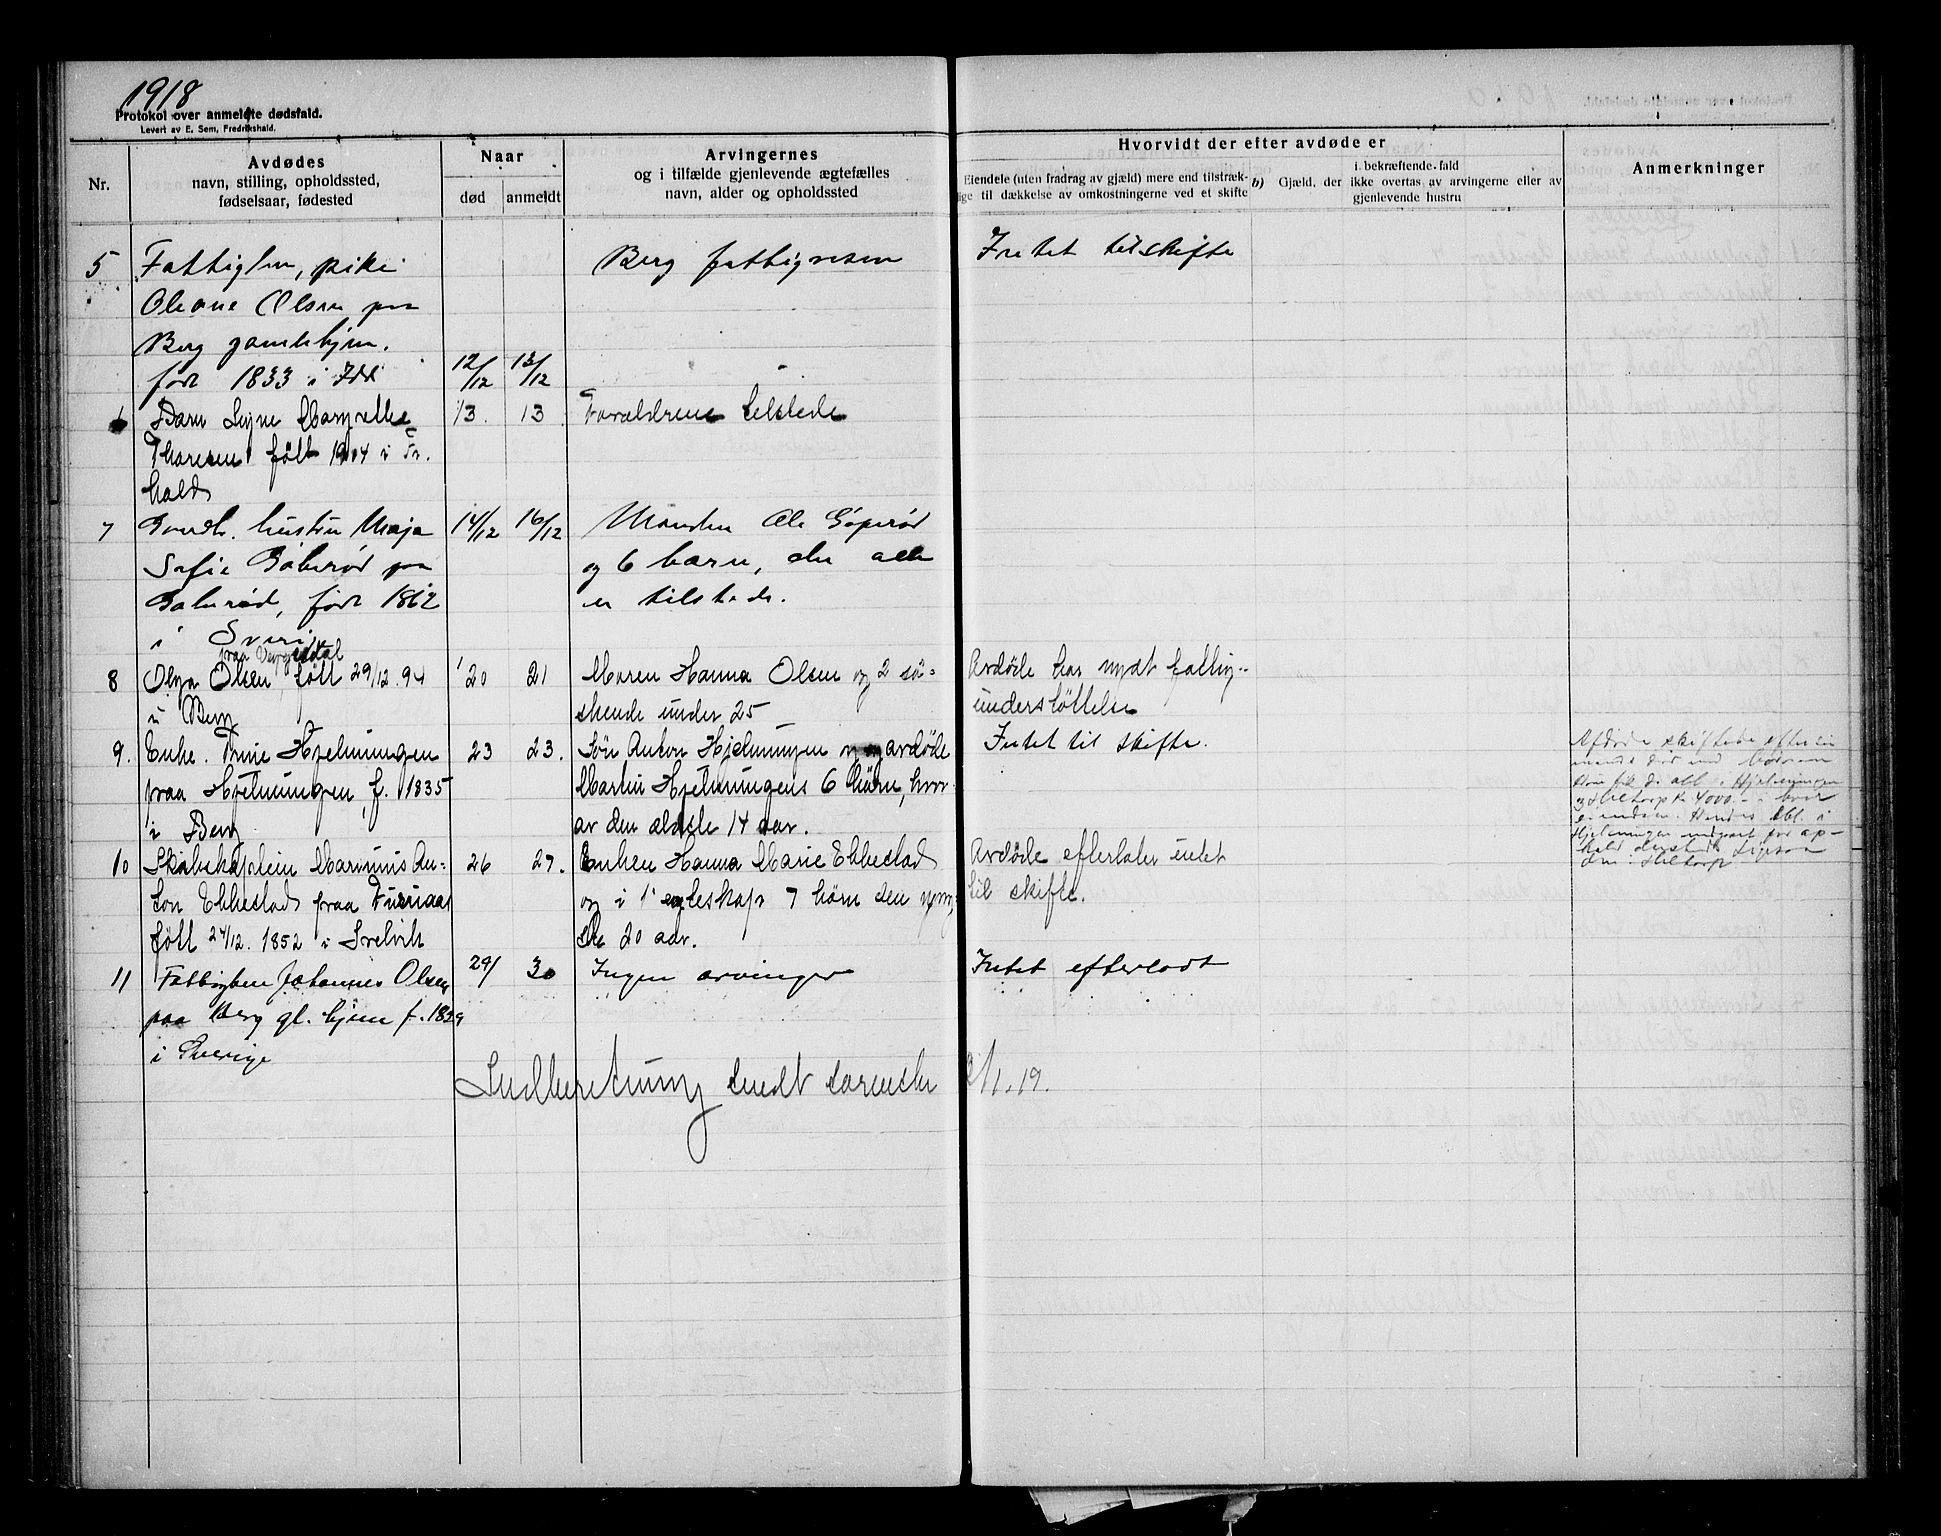 1918
Protokol over anmeldte dødsfald.
Levert av E. Sem, Fredrikshald.
Nr.
Avdødes
navn, stilling, opholdssted,
fødselsaar, fødested
Naar
død
anmeldt
Arvingernes
og i tilfælde gjenlevende ægtefælles
navn, alder og opholdssted
Hvorvidt der efter avdøde er
Eiendele (uten fradrag av gjæld) mere end tilstræk-
lige til dækkelse av omkostningerne ved et skifte
b) Gjæld, der
i bekræftende fald
ikke overtas av arvingerne eller av
gjenlevende hustru
Anmerkninger
5 Fattiglem, pike Berg fattigvesen Intet til skifte
Oleane Olsen paa
Berg gamlehjem.
født 1833 i Idd 12/12 13/12
Barn Signe Margrethe 13. 13 Forældrene tilstede
Thoresen født 1904 i Fr.
hald
7 Gaardb. hustru Maja 14/12 16/12 Manden Ole
Sofie paa og 6 barn, der alle
født 1862 er tilstede.
i Sverige
paa
8 Olga Olsen født 29/12.94 20 21 Maren Hanna Olsen og 2 sø- Avdøde har nydt fattig-
i Berg skende under 25 understøttelse
9. Enke. Hjelmungen 23 23. Søn Anton Hjelmungen og avdøde Intet til skifte.
paa Hjelmungen, f. 1835 Martin Hjelmungens 6 børn, hvor-
i Berg av den ældste 14 aar.
Afdøde skiftede efter sin
mand med
Hjelmungen
kr. 4000.- i hver
eiendom. Hendes
Hjelmungen
10 Marinius An- 26 27. Enken Hanna Marie Ebbestad Avdøde efterlater intet
ton Ebbestad paa Furuaas og i 1' egteskap 7 børn den yng- til skifte.
født 24/12. 1852 i Svelvik ste 20 aar.
11 Fattiglem Johannes Olsen 29/ 30 Ingen arvinger Intet efterladt
paa Berg gl. hjem f. 1829
i Sverige
Indberetning sendt sorensk. 2/1.19.